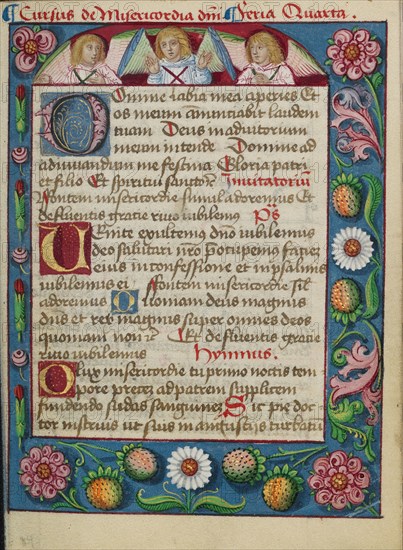 Cursus de Misericordia dñi Feria Quarta.
Domine labia mea aperies Et
os meum annunciabit laudem
tuam Deus in adiutorium
meum intende Domine ad
adiuuandum me festina Gloria patri
et filio Et spiritui sancto Inuitatoriũ
Fontem misericordie simul adoremus Et
defluentis gratie riuo iubilemus Ps
Uenite exultemus dño iubilemus
deo salutari nr̃o Preocupemus faciez
eius in confessione et in psalmis
iubilemus ei Fontem misericordie sil
adoremus Qoniam deus magnus
dñs et rex magnus super omnes deos
quoniam non Et defluentis gratie
riuo iubilemus Hymnus.
O lux misericordie tu primo noctis tem
pore precez ad patrem supplicem
fundendo sudas sanguinez Sic pie doc
tor instruis ut suis in angustijs turbati